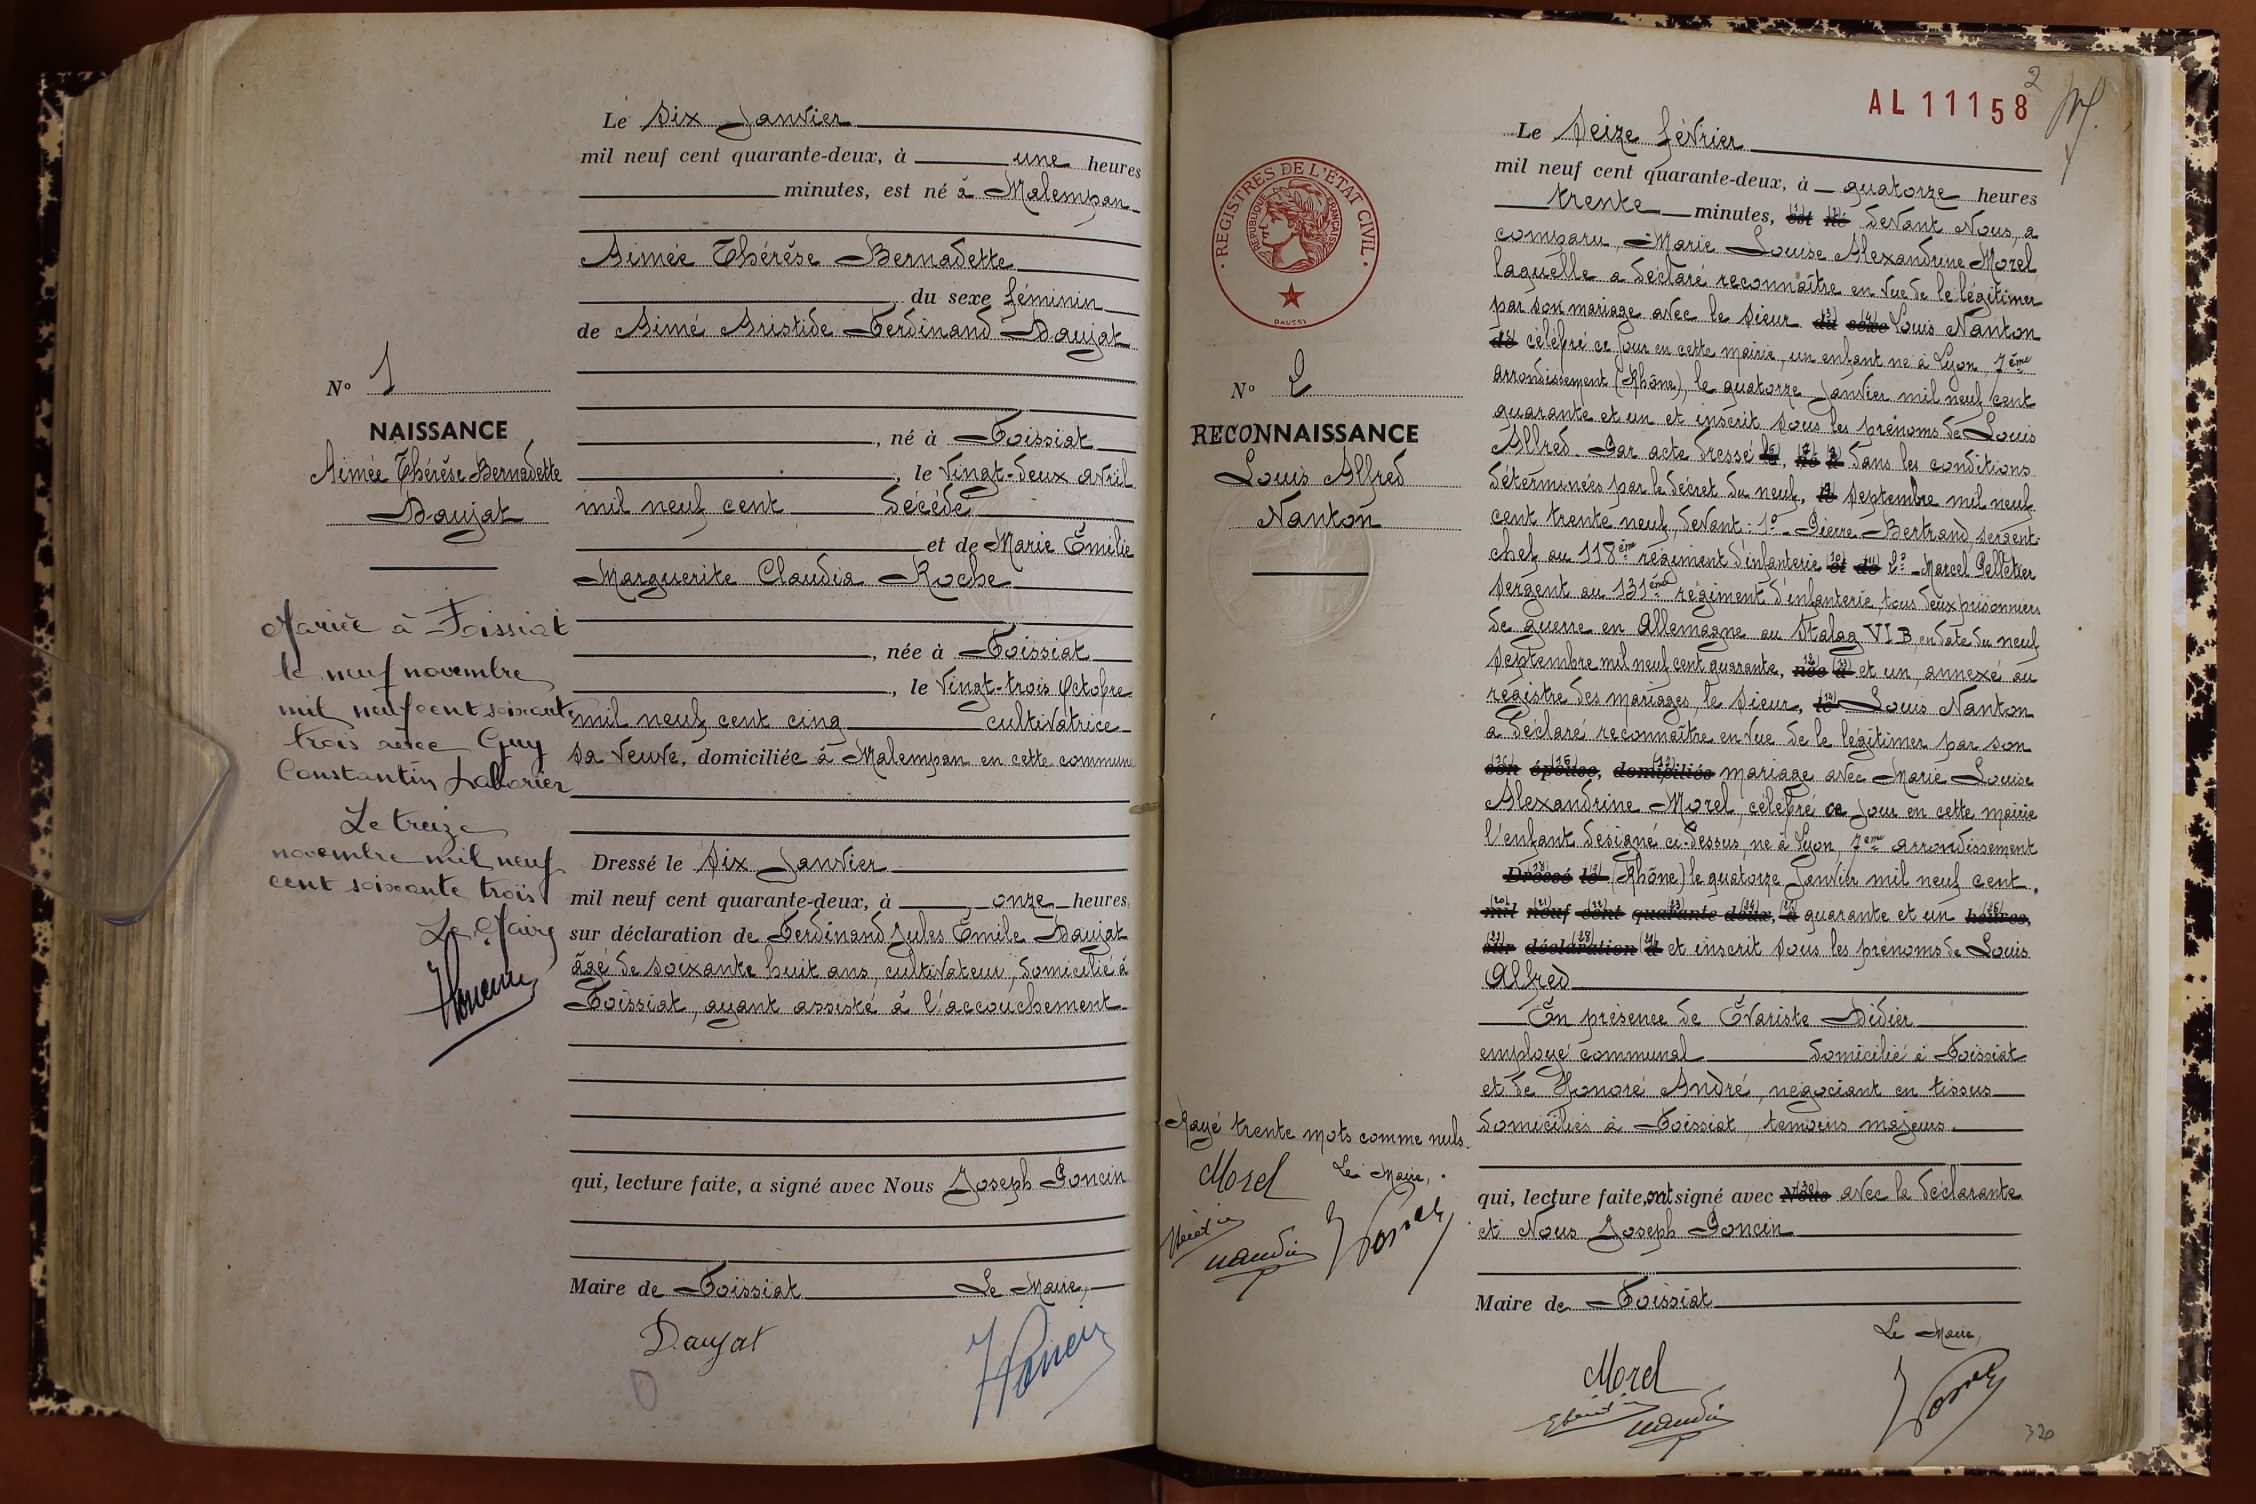 Le Six Janvier
mil neuf cent quarante-deux, à une heures
minutes, est né à Malempan
Aimée Thérèse Bernadette
du sexe féminin
de Aimé Aristide Ferdinand Daujat
N° 1
NAISSANCE
Aimée Thérèse Bernadette
Daujat
, né à Foissiat
, le vingt-deux avril
mil neuf cent décédé
et de Marie Émilie
Marguerite Claudia Roche
, née à Foissiat
, le vingt-trois Octobre
mil neuf cent cinq cultivatrice
sa veuve, domiciliée à Malempan en cette commune
Mariée à Foissiat
le neuf novembre
mil neuf cent soixante
trois avec Guy
Constantin
Le treize
novembre mil neuf
cent soixante trois
Le Maire
Dressé le Six Janvier
mil neuf cent quarante-deux, à onze heures
sur déclaration de Ferdinand Jules Émile Daujat
âgé de soixante huit ans, cultivateur, domicilié à
Foissiat, ayant assisté à l'accouchement
qui, lecture faite, a signé avec Nous Joseph Poncin
Maire de Foissiat Le Maire,
Daujat
2
AL 11158
REGISTRES DE L'ÉTAT CIVIL
RÉPUBLIQUE FRANÇAISE
DAUSSY
N° 2
RECONNAISSANCE
Louis Alfred
Nanton
Le Seize février
mil neuf cent quarante-deux, à quatorze heures
trente minutes, est né devant Nous, a
comparu, Marie Louise Alexandrine Morel
laquelle a déclaré reconnaître en vue de le légitimer
par son mariage avec le sieur du sexe Louis Nanton
de célébré ce jour en cette mairie, un enfant né à Lyon, 7ème
arrondissement (Rhône), le quatorze Janvier mil neuf cent
quarante et un et inscrit sous les prénoms de Louis
Alfred. Par acte dressé né à dans les conditions
déterminées par le décret du neuf, le septembre mil neuf
cent trente neuf, devant : 1° Pierre Bertrand, sergent-
chef au 118ème régiment d'infanterie et de 2° Marcel Pelletier
sergent au 131ème régiment d'infanterie, tous deux prisonniers
de guerre en Allemagne au Stalag VI B, en date du neuf
septembre mil neuf cent quarante, née à et un, annexé au
registre des mariages, le sieur, le Louis Nanton
a déclaré reconnaître en vue de le légitimer par son
son épouse, domiciliés mariage avec Marie Louise
Alexandrine Morel, célébré ce jour en cette mairie
l'enfant désigné ci-dessus, né à Lyon, 7ème arrondissement
Dressé le (Rhône) le quatorze Janvier mil neuf cent
mil neuf cent quarante deux, à quarante et un heures,
sur déclaration d et inscrit sous les prénoms de Louis
Alfred
En présence de Évariste Didier
employé communal domicilié à Foissiat
et de Honoré André, négociant en tissus
domiciliés à Foissiat, témoins majeurs.
Rayé trente mots comme nuls.
Morel Le Maire,
qui, lecture faite, ont signé avec Nous avec la déclarante
et Nous Joseph Poncin
Maire de Foissiat
Le Maire,
Morel
320